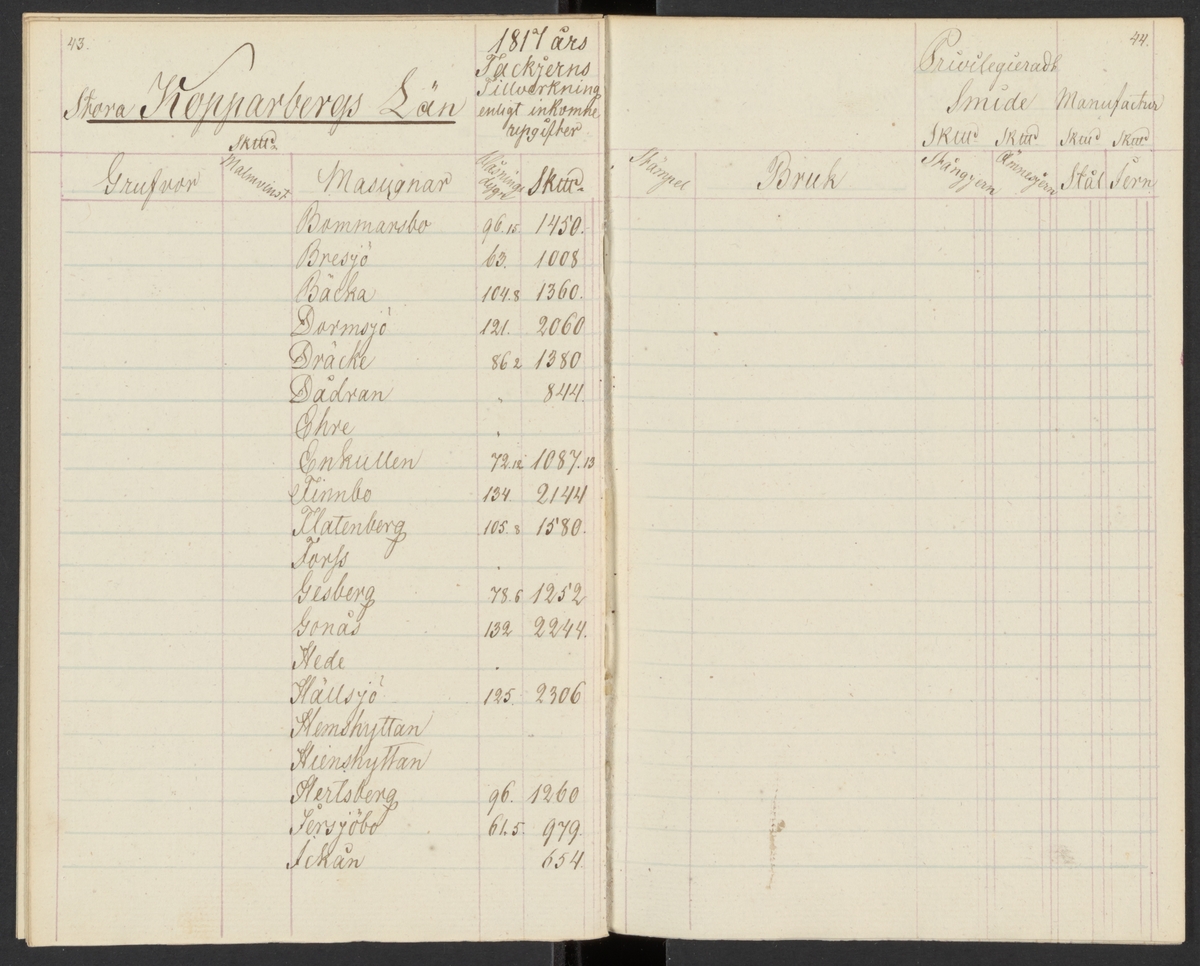 43.
Stora Kopparbergs Län
1817 års
Tackjerns
Tillverkning
enligt inkomne
uppgifter
Sk℔d
Grufvor Malmvinst Masugnar Blåsnings dygn Sk℔d
Bommarsbo 96.15 1450.
Bresjö 63. 1008
Bäcka 104.8 1360.
Dormsjö 121. 2060
Dräcke 86 2 1380
Dådran „ 844.
Ehre
Enkullen 72.12 1087.13
Finnbo 134 2144
Flatenberg 105.8 1580.
Forss
Gesberg 78.6 1252
Gonäs 132 2244.
Hede
Hällsjö 125. 2306
Hemshyttan
Hienshyttan
Hertsberg 96. 1260
Jersjöbo 61.5 979
Ickån 654
44.
Privilegieradt
Smide Manufactur
Sk℔d Sk℔d Sk℔d Sk℔d
Stämpel Bruk Stångjern Ämnesjern Stål Jern